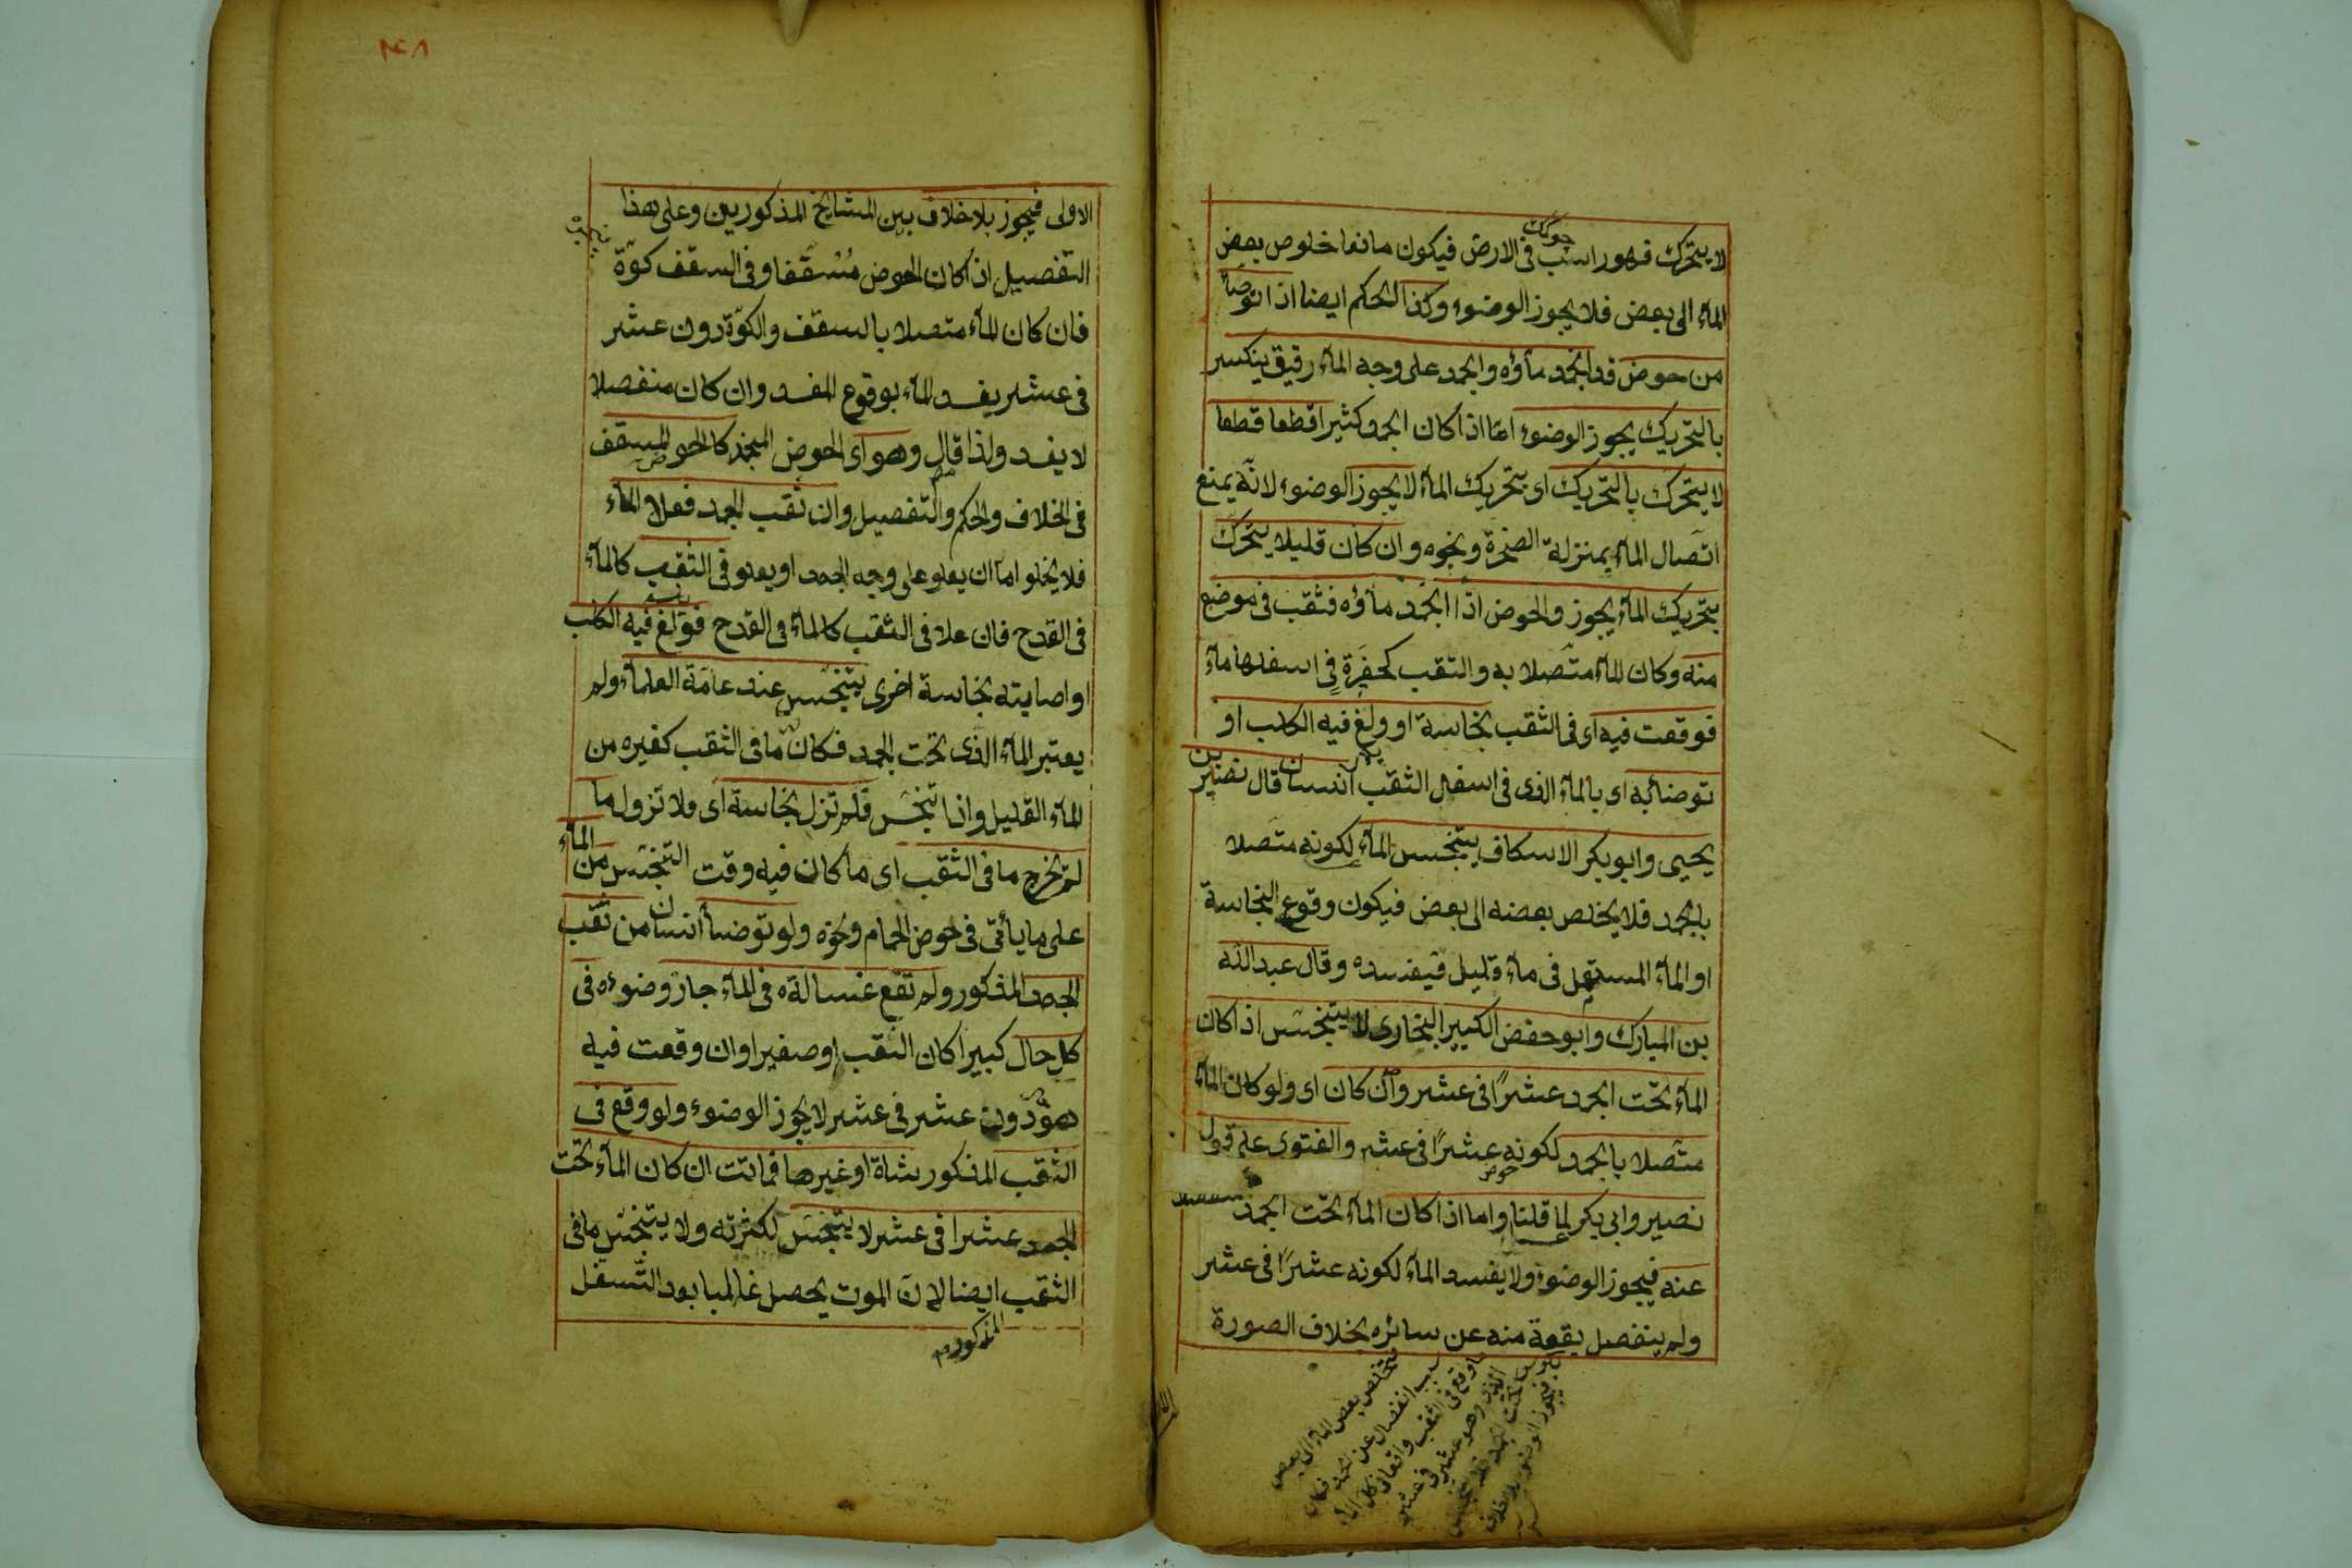 لا يتحرك فهو راسب فى الارض فيكون مانعا خلوص بعض
الماء الى بعض فلا يجوز الوضوء وكذا الحكم ايضا اذا توضأ
من حوض قد انجمد ماؤه والجمد على وجه الماء رقيق ينكسر
بالتحريك يجوز الوضوء امّا اذا كان الجمد كثيرا قطعا قطعا
لا يتحرك بالتحريك اى بتحريك الماء لا يجوز الوضوء لانّه يمنع
اتصال الماء بمنزلة الصخرة ونحوه وان كان قليلا يتحرك
بتحريك الماء يجوز والحوض اذا انجمد ماؤه فثقب فى موضع
منه وكان الماء متصلا به والثقب كحفرة فى اسفلها ماء
فوقعت فيه اى فى الثقب نجاسة او ولغ فيه الكلب او
توضأ به اى بالماء الذى فى اسفل الثقب انسان قال نصير بن
يحيى وابو بكر الاسكاف يتنجس الماء لكونه متصلا
بالجمد فلا يخلص بعضه الى بعض فيكون وقوع النجاسة
او الماء المستعمل فى ماء قليل فيفسده وقال عبد الله
بن المبارك وابو حفص الكبير البخارى لا يتنجس اذا كان
الماء تحت الجمد عشرًا فى عشر وان كان اى ولو كان الماء
متصلا بالجمد لكونه عشرًا فى عشر والفتوى على قول
حوض
نصير وابى بكر لما قلنا واما اذا كان الماء تحت الجمد منفصلا
عنه فيجوز الوضوء ولا يفسد الماء لكونه عشرًا فى عشر
ولم ينفصل بقعة منه عن سائره بخلاف الصورة
بعض الماء الى بعض
سبب انفصال عن الجمد فكان
وقع فى الثقب واقعا فى كل الماء
وهو عشر فى عشر
تحت الجمد
فيجوز الوضوء بلا خلاف
٣٤٨
الاولى فيجوز بلا خلاف بين المشايخ المذكورين وعلى هذا
التفصيل اذا كان الحوض مُسَقّفا وفى السقف كوّة
فان كان الماء متصلا بالسقف والكوّة دون عشر
فى عشر يفسد الماء بوقوع المفسد وان كان منفصلا
لا يفسد ولذا قال وهو اى الحوض المنجمد كالحوض المسقف
فى الخلاف والحكم والتفصيل وان ثقب الجمد فعلا الماء
فلا يخلو اما ان يعلو على وجه الجمد او يعلو فى الثقب كالماء
فى القدح فان علا فى الثقب كالماء فى القدح فولغ فيه الكلب
او اصابته نجاسة اخرى يتنجس عند عامّة العلماء ولم
يعتبر الماء الذى تحت الجمد فكان ما فى الثقب كغيره من
الماء القليل واذا تنجس فلم تزل نجاسة اى ولا تزول ما
لم يخرج ما فى الثقب اى ما كان فيه وقت التنجّس من الماء
على ما يأتى فى حوض الحمام ونحوه ولو توضأ انسان من ثقب
الجمد المذكور ولم تقع غسالته فى الماء جاز وضوءه فى
كل حال كبيرا كان الثقب او صغيرا وان وقعت فيه
وهو دون عشر فى عشر لا يجوز الوضوء ولو وقع فى
الثقب المذكور شاة او غيرها فماتت ان كان الماء تحت
الجمد عشرا فى عشر لا يتنجس لكثرته ولا يتنجّس ما فى
الثقب ايضا لان الموت يحصل غالبا بعد التسفل
المذكور